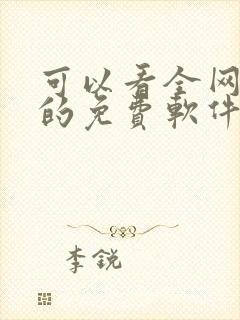 可以看全网
的免費軟件
李銳